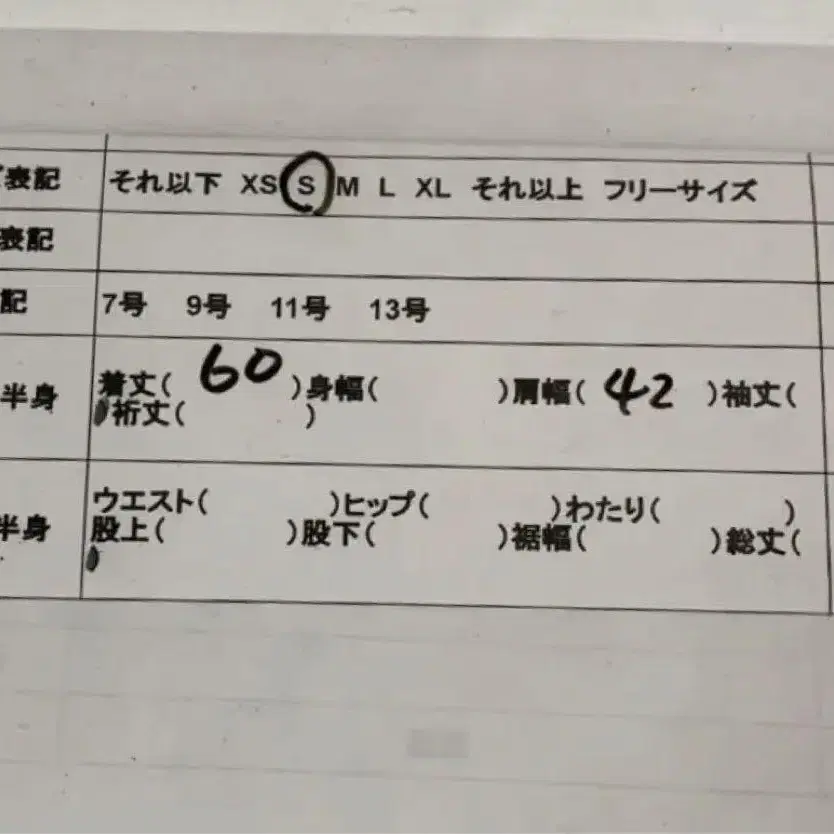 表記 それ以下 XS S M L XL それ以上 フリーサイズ
表記
記 7号 9号 11号 13号
半身 着丈( 60 )身幅( )肩幅( 42 )袖丈(
裄丈( )
半身 ウエスト( )ヒップ( )わたり( )
股上( )股下( )裾幅( )総丈(